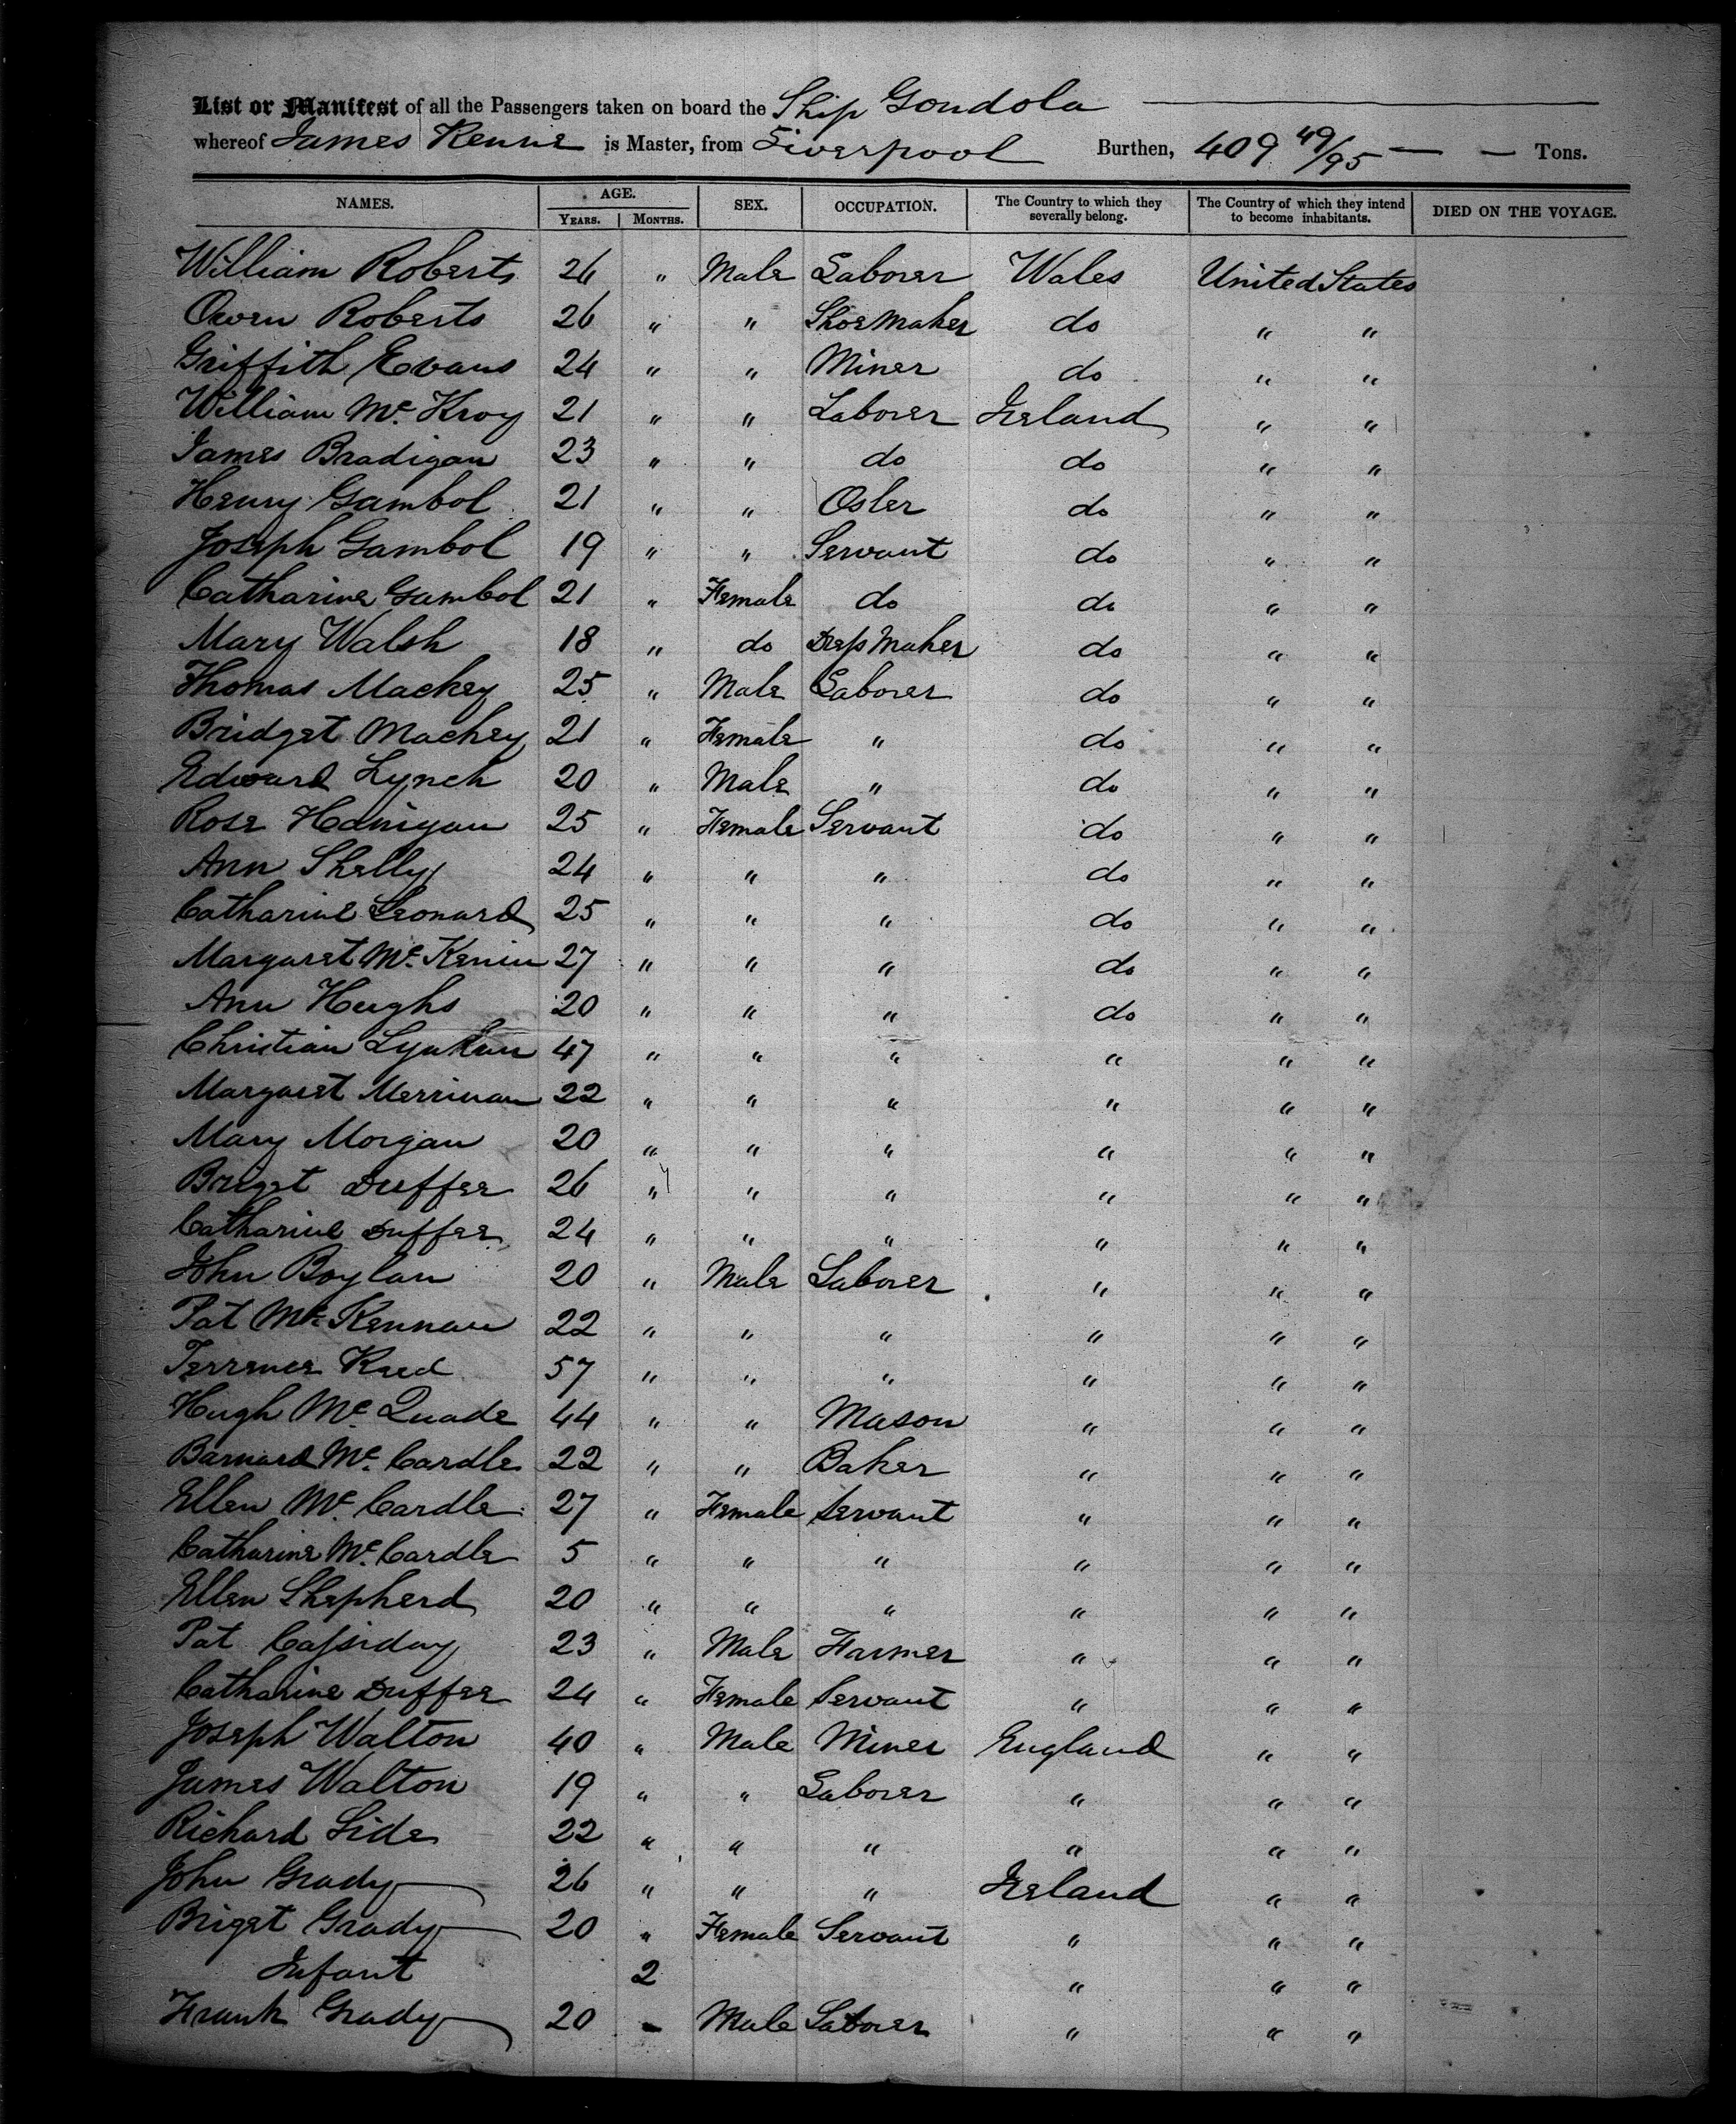 List or Manifest of all the Passengers taken on board the Ship Gondola
whereof James Kenne is Master, from Liverpool Burthen, 409 49/95 Tons.
NAMES. AGE. SEX. OCCUPATION. The Country to which they severally belong. The Country of which they intend to become inhabitants. DIED ON THE VOYAGE.
YEARS. MONTHS.
William Roberts 26 " Male Laborer Wales United States
Owen Roberts 26 " " Shoe Maker do " "
Griffith Evans 24 " " Miner do " "
William Mc. Kroy 21 " " Laborer Ireland " "
James Bradigan 23 " " do do " "
Henry Gambol 21 " " Osler do " "
Joseph Gambol 19 " " Servant do " "
Catharine Gambol 21 " Female do do " "
Mary Walsh 18 " do Dress Maker do " "
Thomas Mackey 25 " Male Laborer do " "
Bridget Mackey 21 " Female " do " "
Edward Lynch 20 " Male " do " "
Rose Hanigan 25 " Female Servant do " "
Ann Shelly 24 " " " do " "
Catharine Leonard 25 " " " do " "
Margaret Mc. Kenin 27 " " " do " "
Ann Hughs 20 " " " do " "
Christian 47 " " " " " "
Margaret Merriman 22 " " " " " "
Mary Morgan 20 " " " " " "
Briget Duffee 26 " " " " " "
Catharine Duffee 24 " " " " " "
John Boylan 20 " Male Laborer " " "
Pat Mc. Kennan 22 " " " " " "
Terrence Reed 57 " " " " " "
Hugh Mc. Quade 44 " " Mason " " "
Barnard Mc. Cardle 22 " " Baker " " "
Ellen Mc. Cardle 27 " Female Servant " " "
Catharine Mc. Cardle 5 " " " " " "
Ellen Shepherd 20 " " " " " "
Pat Cassiday 23 " Male Farmer " " "
Catharine Duffee 24 " Female Servant " " "
Joseph Walton 40 " Male Miner England " "
James Walton 19 " " Laborer " " "
Richard Side 22 " " " " " "
John Grady 26 " " " Ireland " "
Briget Grady 20 " Female Servant " " "
Infant 2 " " "
Frank Grady 20 - Male Laborer " " "